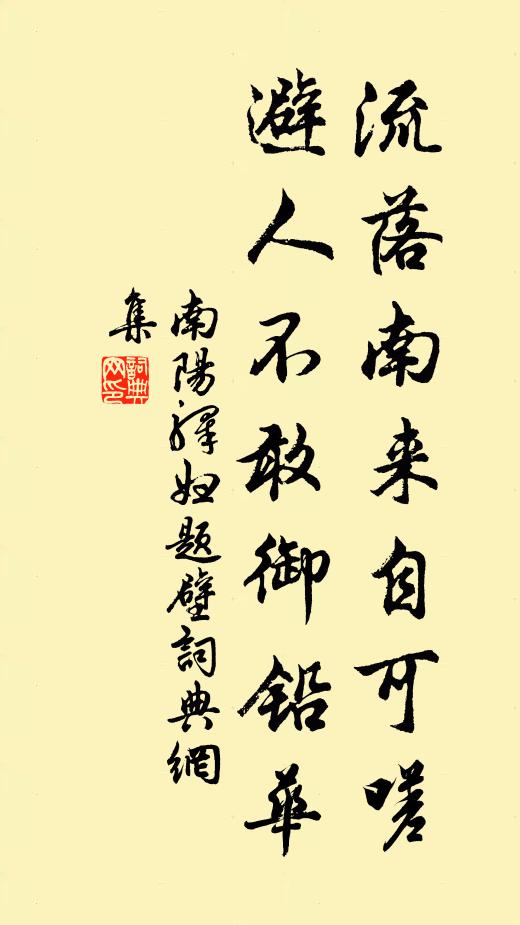 流落南来自可嗟
避人不敢御铅華
南陽驛妇題壁詞典網
集
詞典網印